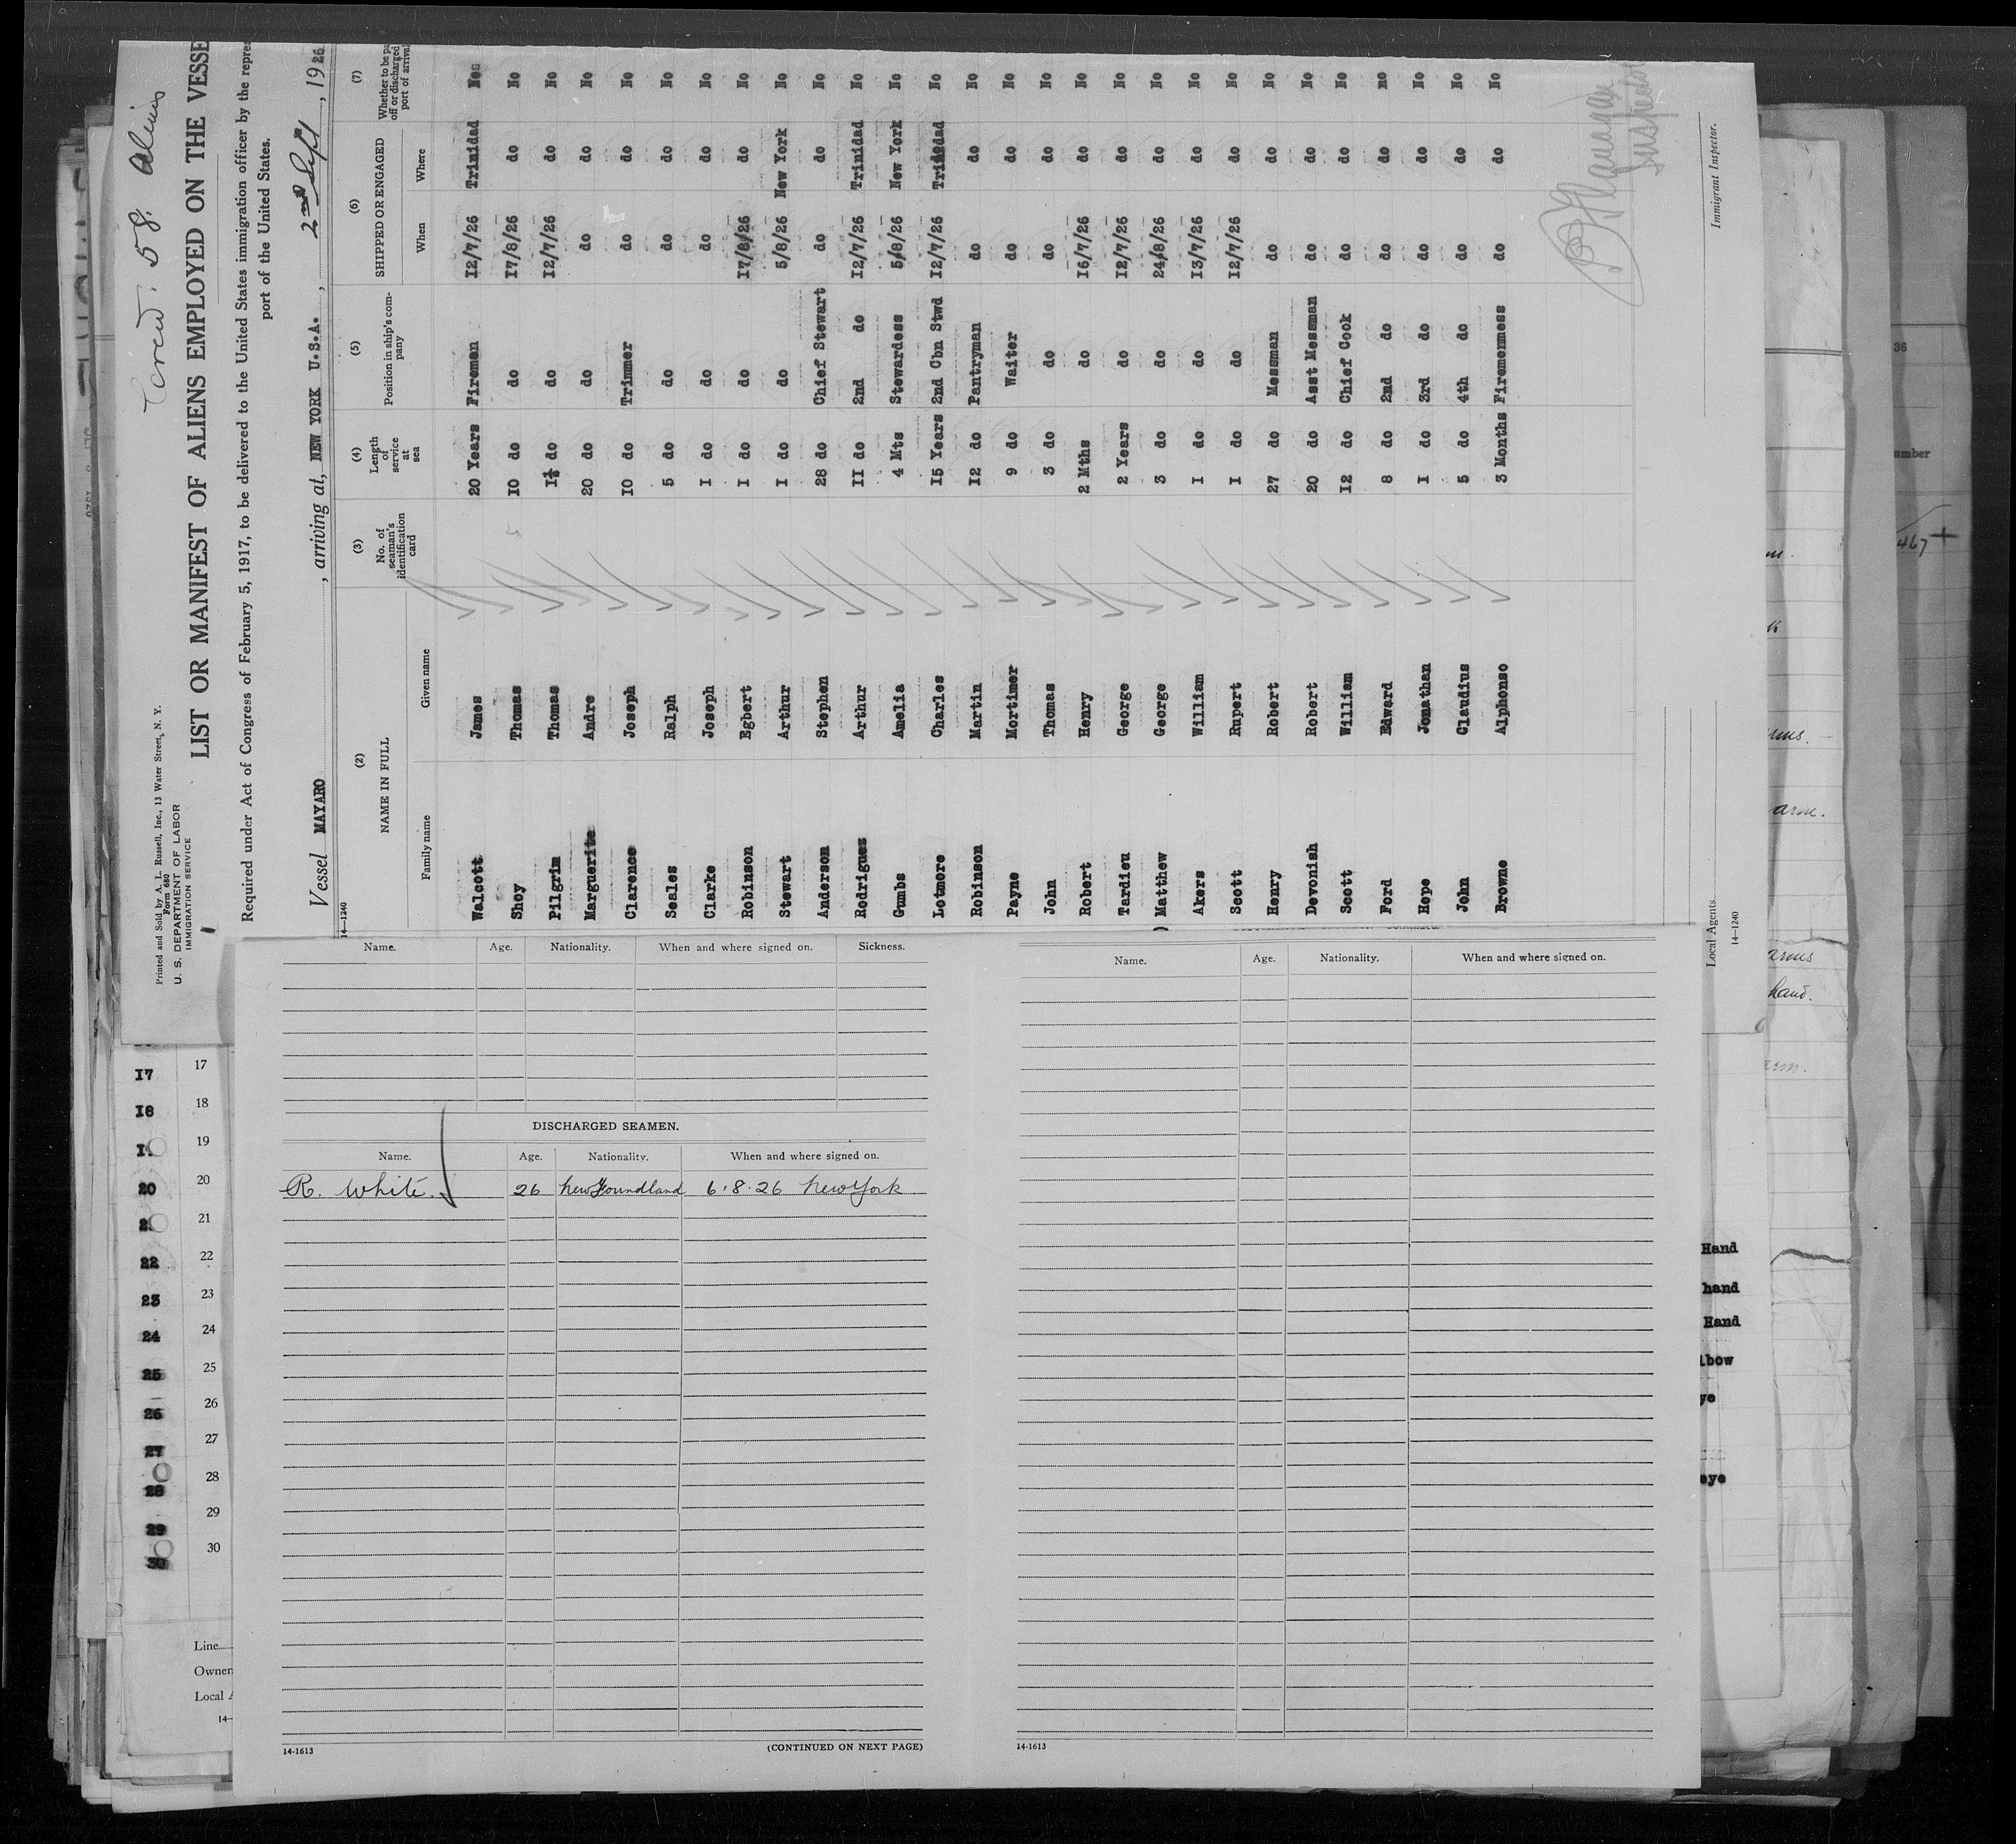 Crew. 58. Aliens
Printed and Sold by A. L. Russell, Inc., 13 Water Street, N. Y.
Form 680
U. S. DEPARTMENT OF LABOR
IMMIGRATION SERVICE
LIST OR MANIFEST OF ALIENS EMPLOYED ON THE VESSE
Required under Act of Congress of February 5, 1917, to be delivered to the United States immigration officer by the repre
port of the United States.
Vessel MAYARO, arriving at, NEW YORK U.S.A., 2nd Sept, 1926
14-1240
(2) (3) (4) (5) (6) (7)
NAME IN FULL No. of seaman's identification card Length of service at sea Position in ship's company SHIPPED OR ENGAGED Whether to be pa off or discharged port of arrival
Family name Given name When Where
Walcott James 20 Years Fireman 12/7/26 Trinidad Nos
Shoy Thomas 10 do do 17/8/26 do No
Pilgrim Thomas 1½ do do 12/7/26 do No
Marguerite Andre 20 do do do do No
Clarence Joseph 10 do Trimmer do do No
Seales Ralph 5 do do do do No
Clarke Joseph I do do do do No
Robinson Egbert I do do 17/8/26 do No
Stewart Arthur I do do 5/8/26 New York No
Anderson Stephen 28 do Chief Stewart do do No
Rodriguez Arthur II do 2nd do 12/7/26 Trinidad No
Gumbs Amelia 4 Mts Stewardess 5/8/26 New York No
Lotmore Charles 15 Years 2nd Cbn Stwd 12/7/26 Trinidad No
Robinson Martin 12 do Pantryman do do No
Payne Mortimer 9 do Waiter do do No
John Thomas 3 do do do do No
Robert Henry 2 Mths do 16/7/26 do No
Tardieu George 2 Years do 12/7/26 do No
Matthew George 3 do do 24/8/26 do No
Akers William I do do 13/7/26 do No
Scott Rupert I do do 12/7/26 do No
Henry Robert 27 do Messman do do No
Devonish Robert 20 do Asst Messman do do No
Scott William 12 do Chief Cook do do No
Ford Edward 8 do 2nd do do do no
Hope Jonathan I do 3rd do do do No
John Claudius 5 do 4th do do do No
Browne Alphonso 3 Months Firemenmess do do No
Inspector
Immigrant Inspector.
Local Agents
14-1240
Name. Age. Nationality. When and where signed on. Sickness.
DISCHARGED SEAMEN.
Name. Age. Nationality. When and where signed on.
R. White. 26 Newfoundland 6.8.26 New York
14-1613 (CONTINUED ON NEXT PAGE)
Name. Age. Nationality. When and where signed on.
14-1613
17 17
18 18
19
20 20
21
22 22
23 23
24 24
25 25
26 26
27 27
28 28
29 29
30 30
Line
Owner
Local A
14-
36
umber
467 +
arm.
arms
hand.
Hand
hand
Hand
lbow
ye
eye